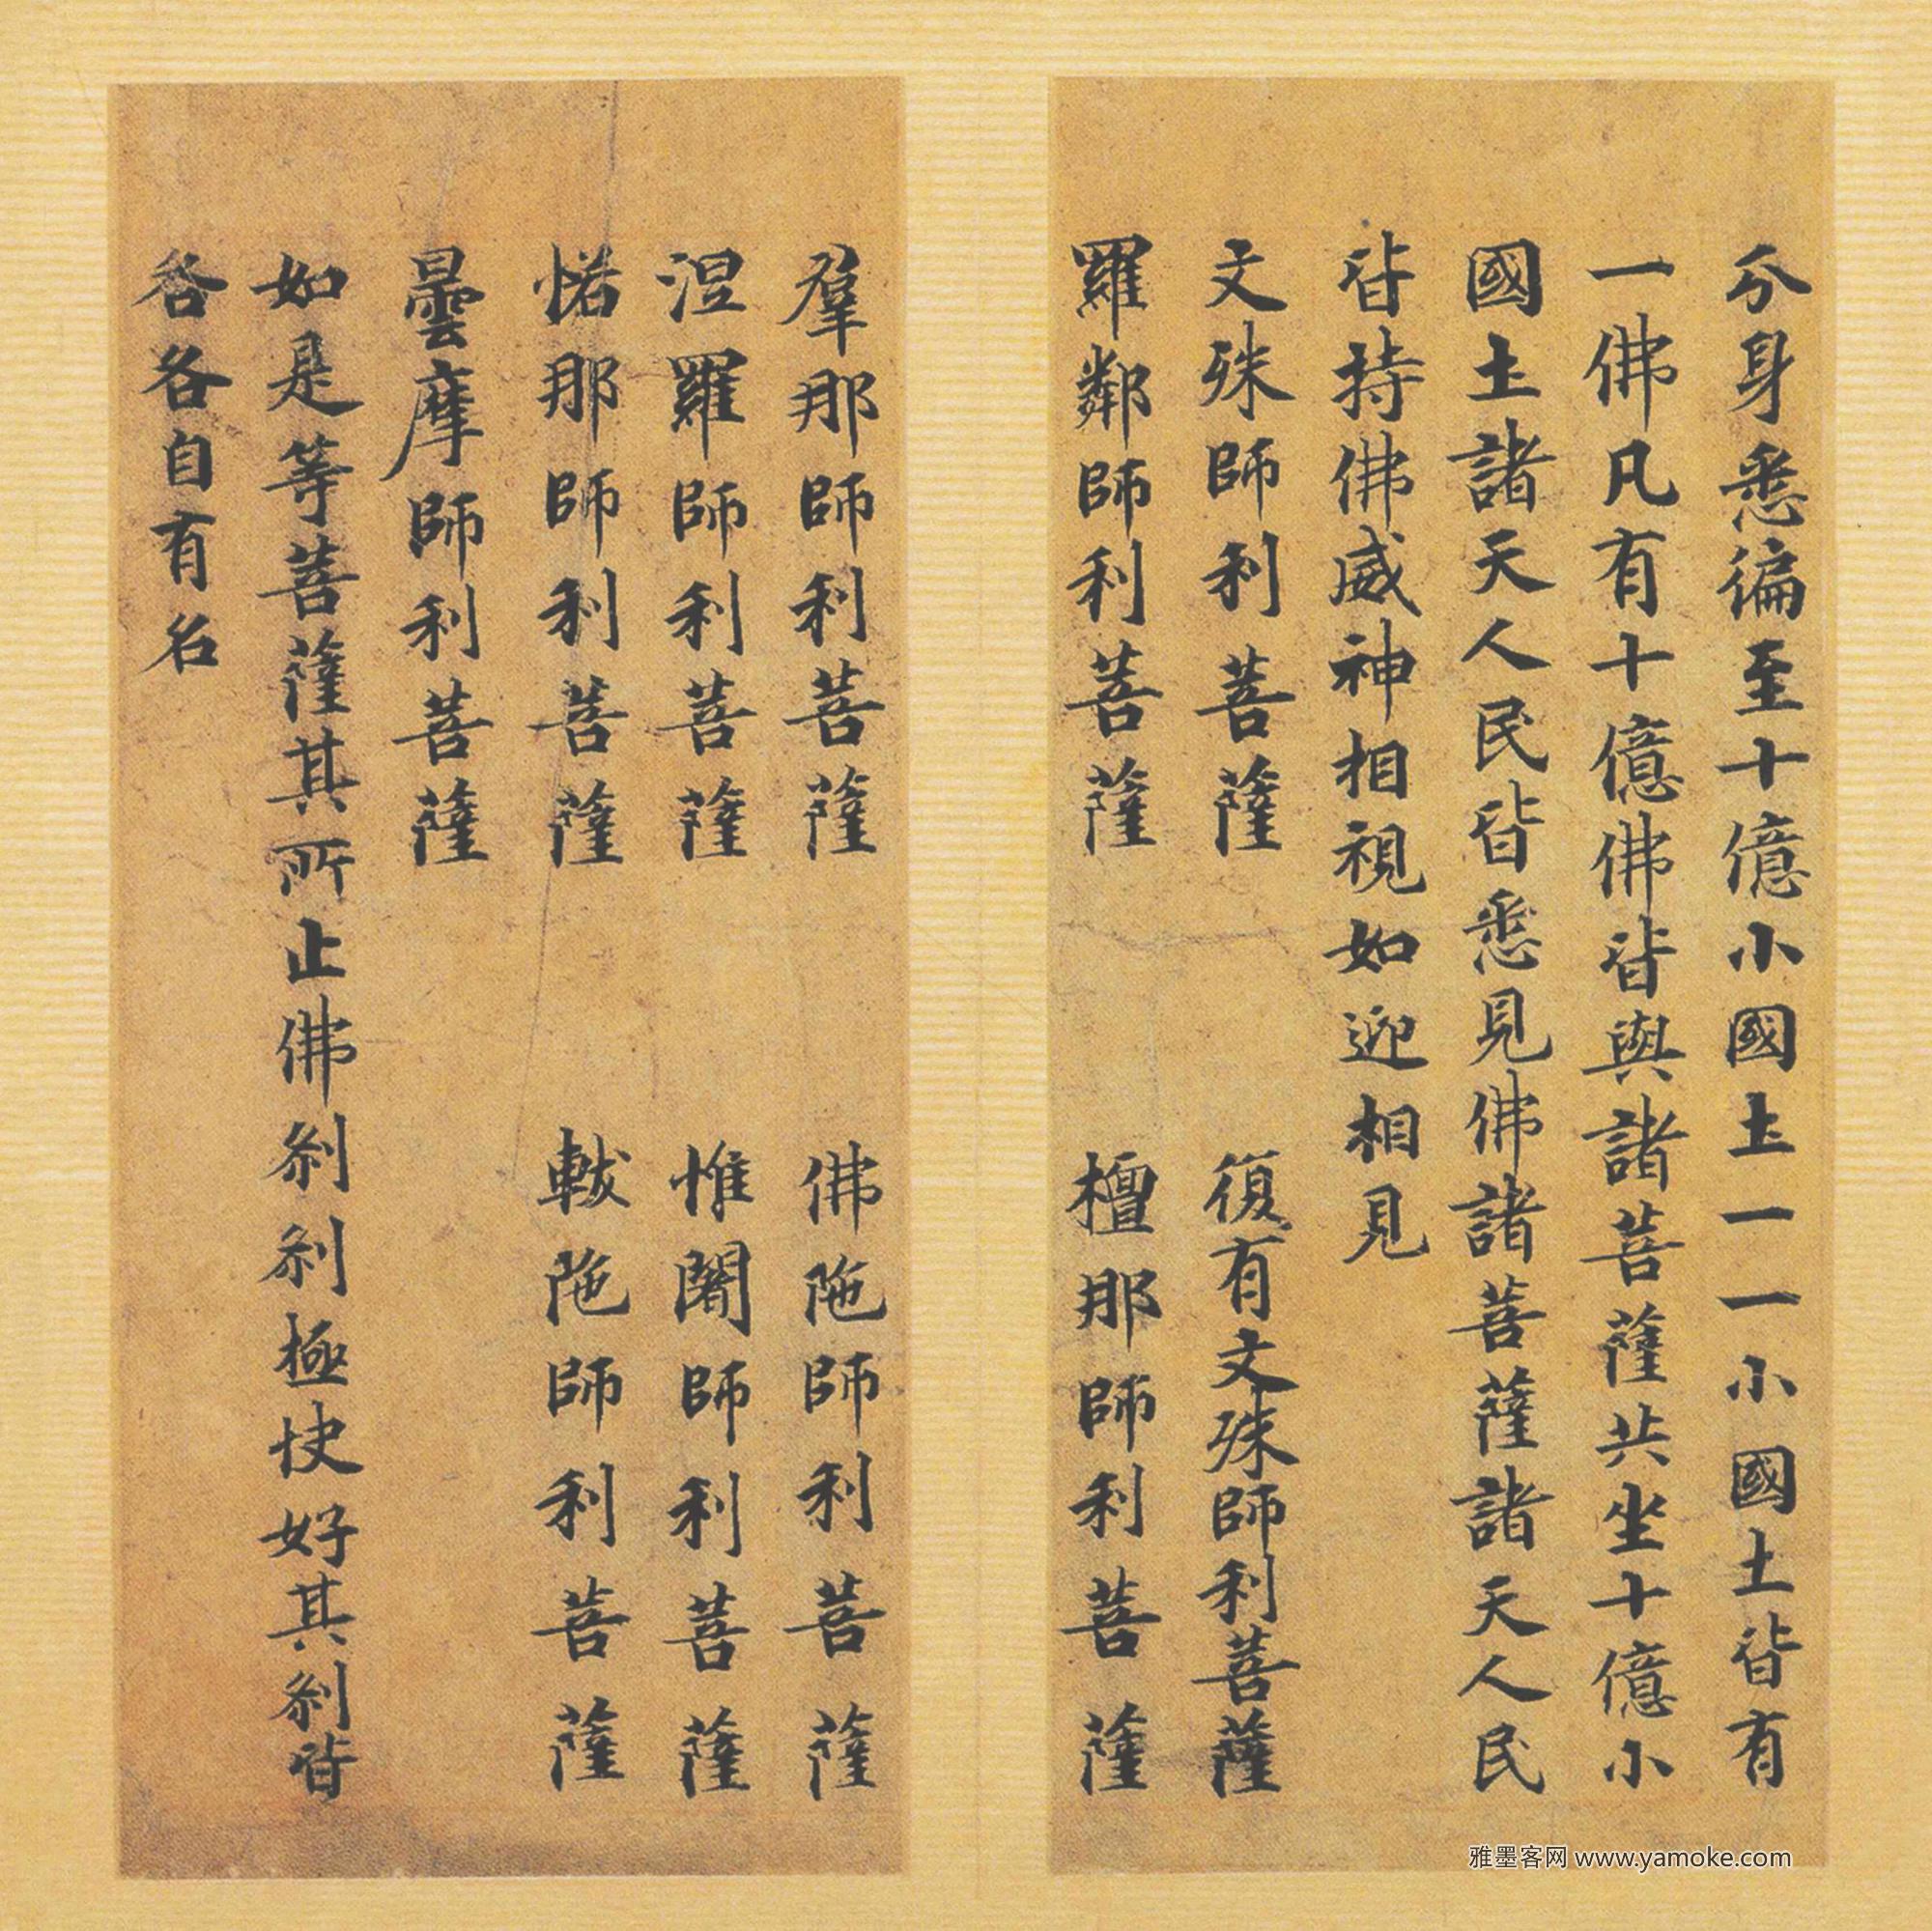 分身悉徧至十億小國土一一小國土皆有
一佛凡有十億佛皆與諸菩薩共坐十億小
國土諸天人民皆悉見佛諸菩薩諸天人民
皆持佛威神相視如迎相見
文殊師利菩薩　復有文殊師利菩薩
羅鄰師利菩薩　檀那師利菩薩
羣那師利菩薩　佛陁師利菩薩
涅羅師利菩薩　惟闍師利菩薩
惒那師利菩薩　軷陁師利菩薩
曇摩師利菩薩
如是等菩薩其所止佛剎剎極快好其剎皆
各各自有名
雅墨客网 www.yamoke.com